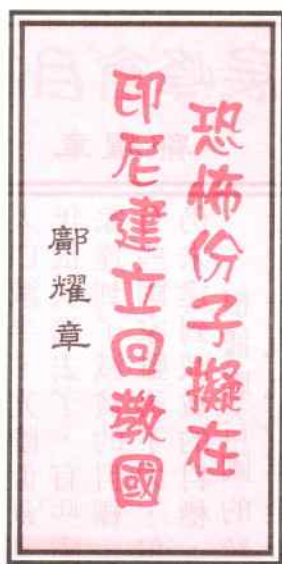 恐怖份子擬在
印尼建立回教國
鄺耀章